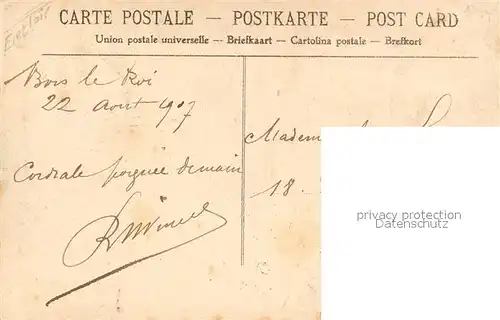 CARTE POSTALE — POSTKARTE — POST CARD
Union postale universelle — Briefkaart — Cartolina postale — Brefkort
Bois le Roi
22 Aout 1907
Cordiale poignée de main
Madem
18
privacy protection
Datenschutz